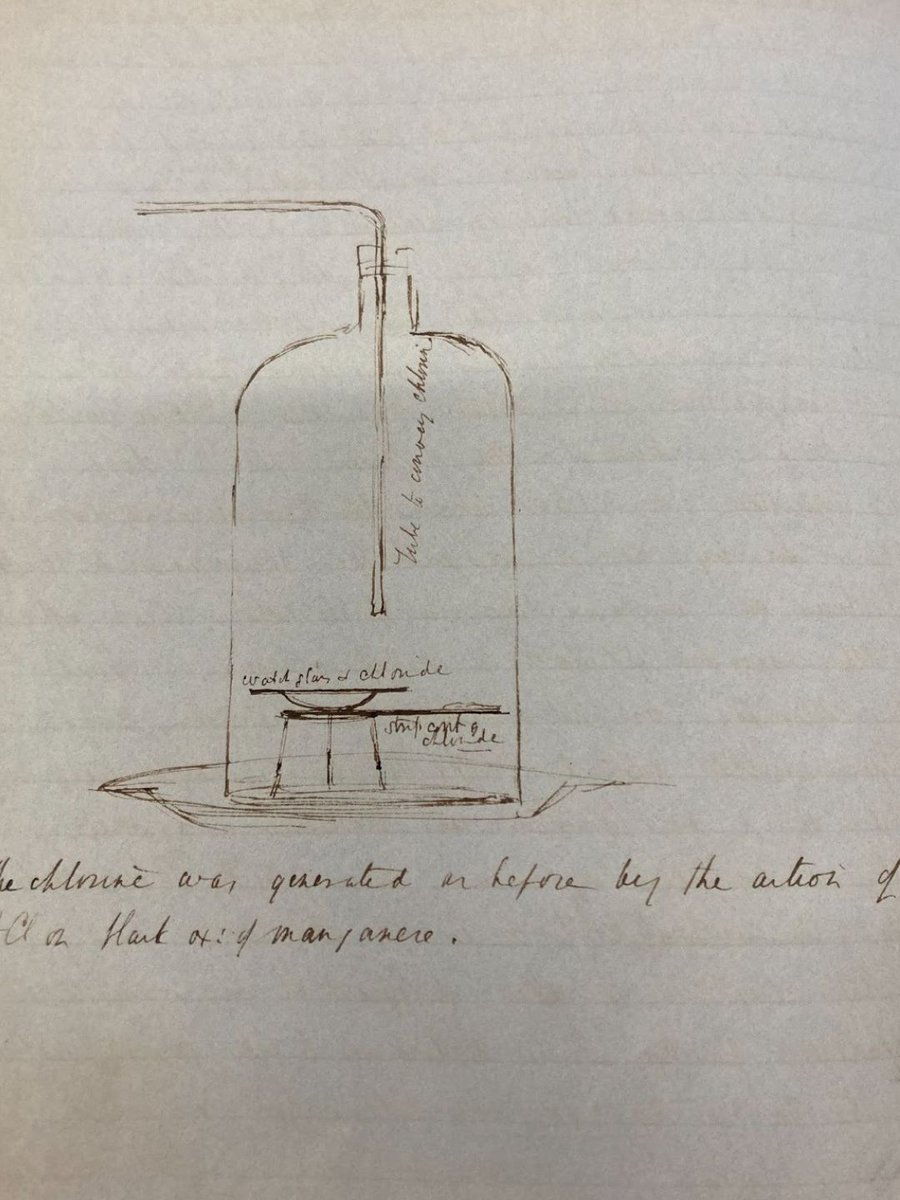 Tube to convey chlorine
watch glass & chloride
strip cont g
chloride
The chlorine was generated as before by the action of
HCl on black ox: of manganese.